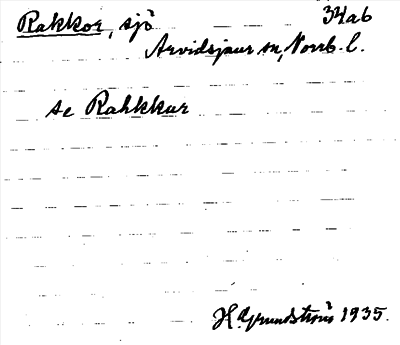 Rakkor, sjö 34ab
Arvidsjaur sn, Norrb. l.
se Rahkkur
H. Grundström 1935.